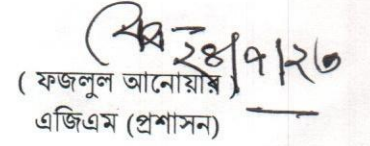 ২৪|৭|২৩
( ফজলুল আনোয়ার )
এজিএম (প্রশাসন)